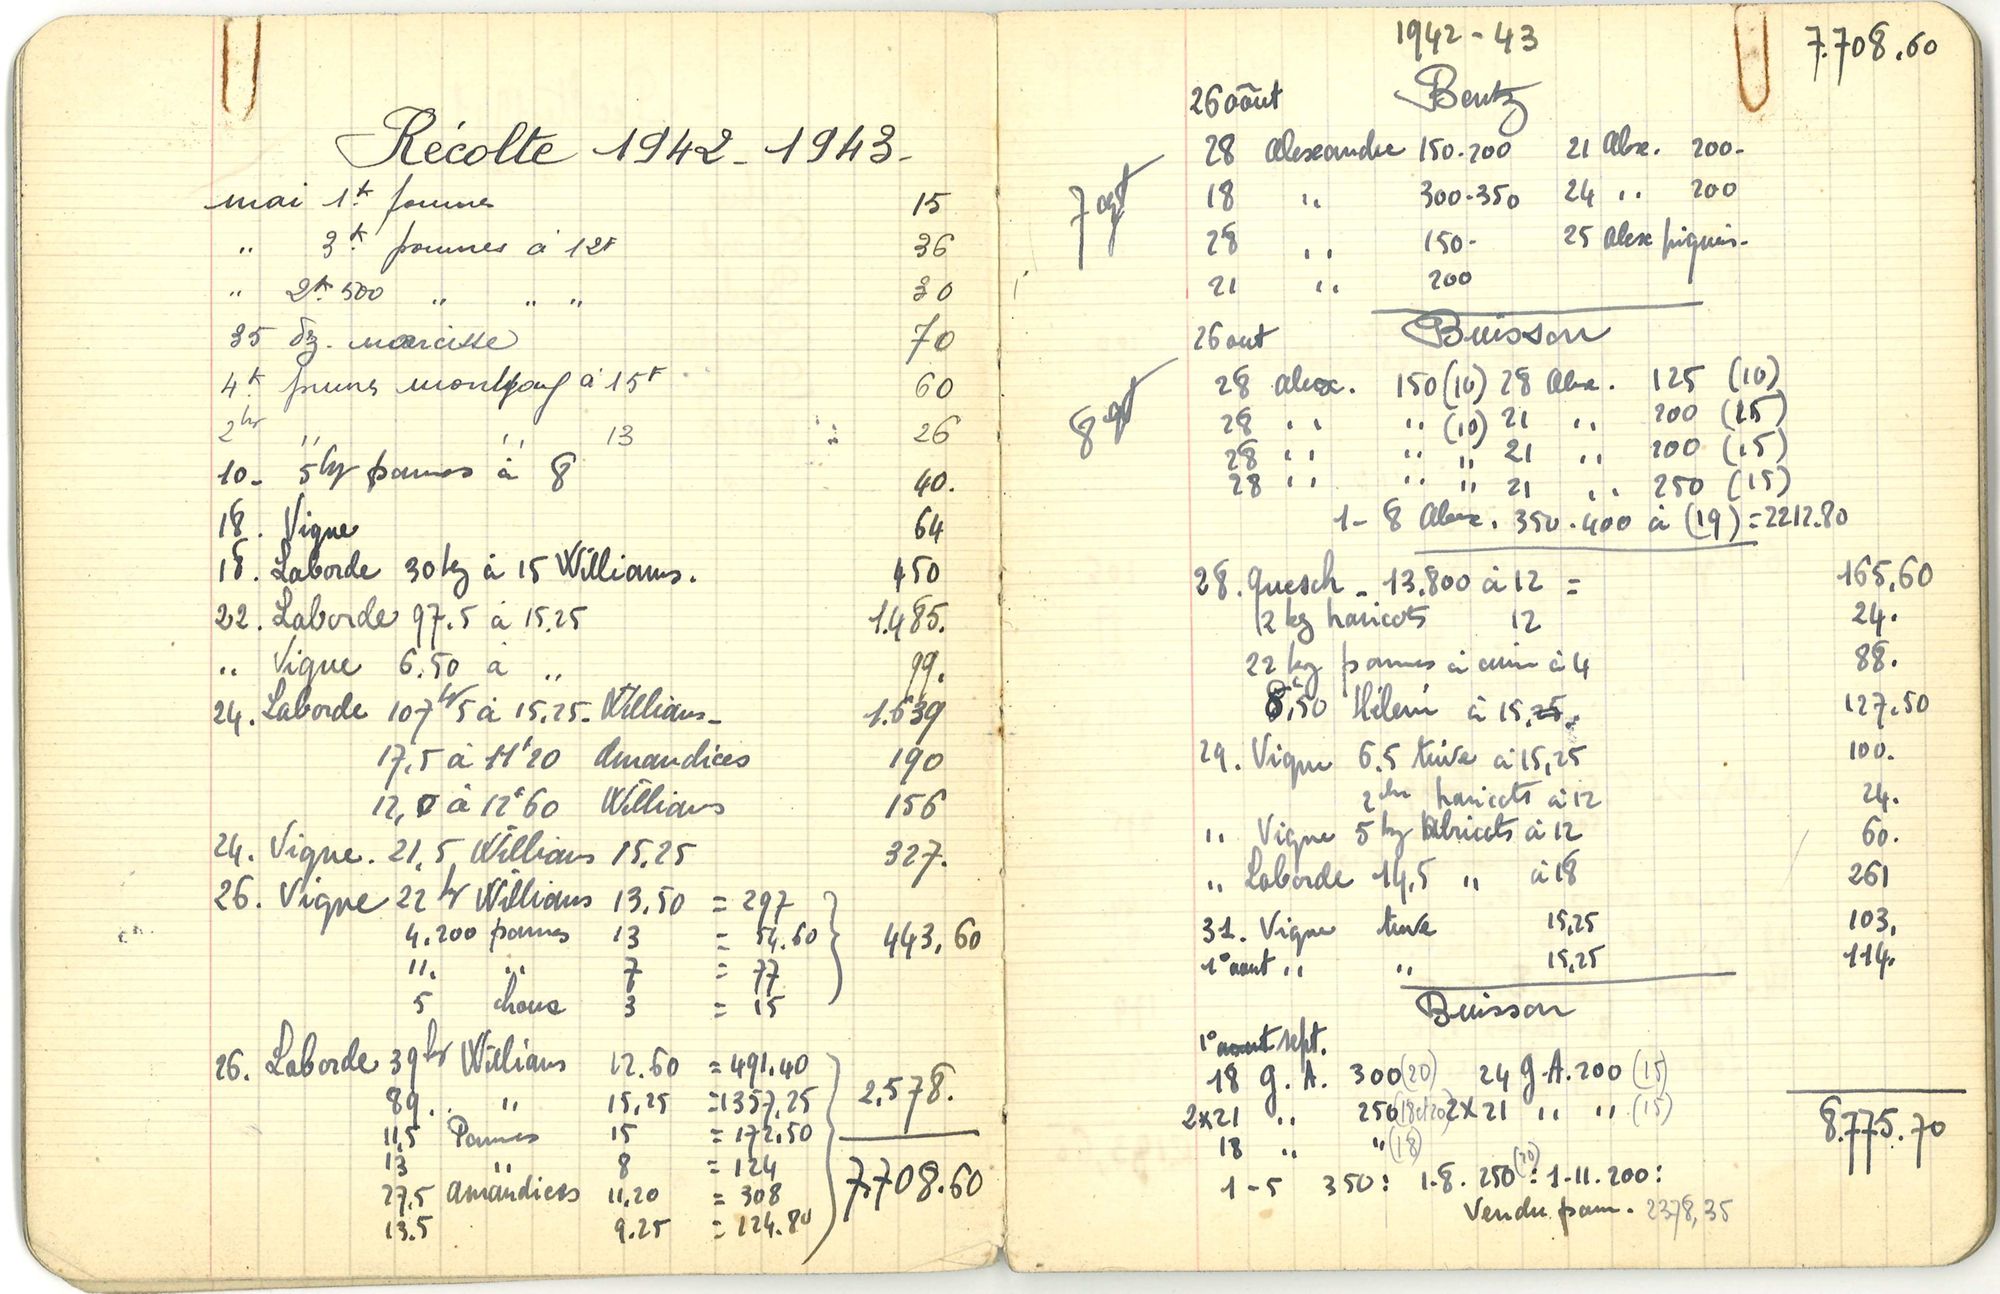 Récolte 1942-1943-
mai 1k pommes 15
" 3k pommes à 12F 36
" 2k500 " " " 30
35 dz. narcisse 70
4k prunes à 15F 60
2kg " " 13 26
10- 5kg pommes à 8 40.
18. Vigne 64
18. Laborde 30kg à 15 Williams. 450
22. Laborde 97.5 à 15,25 1.485.
" Vigne 6.50 à " 99.
24. Laborde 107kg5 à 15,25- Williams- 1.639
17,5 à 11F20 Amandices 190
12,0 à 12F60 Williams 156
24. Vigne. 21,5 Williams 15,25 327.
26. Vigne 22kg Williams 13,50 = 297
4.200 pommes 13 = 54.60 443,60
11. " 7 = 77
5 choux 3 = 15
26. Laborde 39kg Williams 12.60 = 491.40
89. " 15,25 = 1357,25 2,578.
11,5 Pommes 15 = 172,50
13 " 8 = 124
27,5 Amandices 11,20 = 308 7.708.60
13.5 9.25 = 124.80
1942-43 7.708.60
26 août Bentz
28 Alexandre 150-200 21 Alex. 200-
7 cgt
18 " 300-350 24 " 200
28 " 150- 25 Alex piqués-
21 " 200
26 aout Buisson
28 Alex. 150 (10) 28 Alex. 125 (10)
8 cgt
28 " " (10) 21 " 200 (15)
28 " " " 21 " 200 (15)
28 " " " 21 " 250 (15)
1-8 Alex. 350-400 à (19) = 2212.80
28. Quesch - 13,800 à 12 = 165,60
2 kg haricots 12 24.
22 kg pommes à cuire à 4 88.
8,50 à 15,25. 127.50
29. Vigne 6.5 à 15,25 100.
2kg haricots à 12 24.
" Vigne 5kg Abricots à 12 60.
" Laborde 14,5 " à 18 261
31. Vigne 15,25 103,
1° aout " " 15,25 114.
Buisson
1° aout sept.
18 G. A. 300 (20) 24 G.A. 200 (15)
2x21 " 250 (18et20) 2x21 " " (15)
18 " " (18) 8.775.70
1-5 350: 1-8. 250 (20): 1-11. 200:
Vendu pom. 2378,35